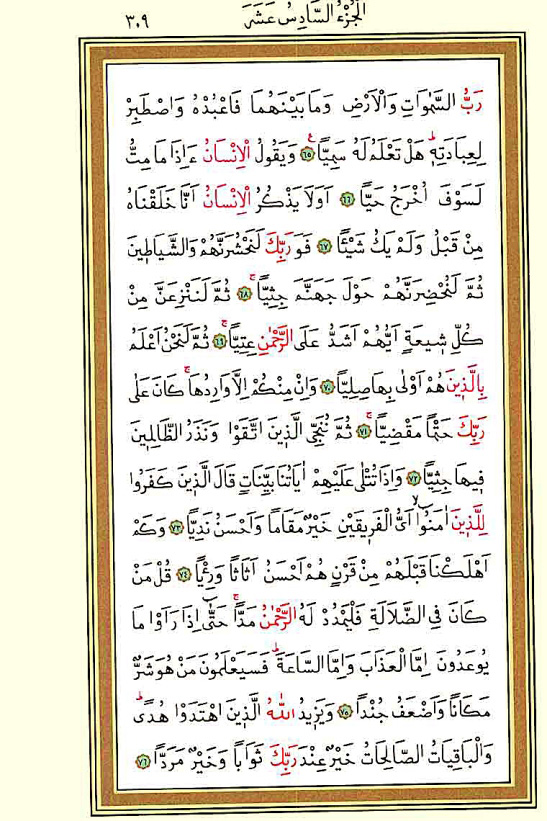 الجزء السادس عشر
٣٠٩
رَبُّ السَّمٰوَاتِ وَالْاَرْضِ وَمَا بَيْنَهُمَا فَاعْبُدْهُ وَاصْطَبِرْ
لِعِبَادَتِهٖۜ هَلْ تَعْلَمُ لَهُ سَمِيًّاۚ ﴿٦٥﴾ وَيَقُولُ الْاِنْسَانُ ءَاِذَا مَا مِتُّ
لَسَوْفَ اُخْرَجُ حَيًّا ﴿٦٦﴾ اَوَلَا يَذْكُرُ الْاِنْسَانُ اَنَّا خَلَقْنَاهُ
مِنْ قَبْلُ وَلَمْ يَكُ شَيْـًٔا ﴿٦٧﴾ فَوَرَبِّكَ لَنَحْشُرَنَّهُمْ وَالشَّيَاطٖينَ
ثُمَّ لَنُحْضِرَنَّهُمْ حَوْلَ جَهَنَّمَ جِثِيًّاۚ ﴿٦٨﴾ ثُمَّ لَنَنْزِعَنَّ مِنْ
كُلِّ شٖيعَةٍ اَيُّهُمْ اَشَدُّ عَلَى الرَّحْمٰنِ عِتِيًّاۚ ﴿٦٩﴾ ثُمَّ لَنَحْنُ اَعْلَمُ
بِالَّذٖينَ هُمْ اَوْلٰى بِهَا صِلِيًّا ﴿٧٠﴾ وَاِنْ مِنْكُمْ اِلَّا وَارِدُهَاۚ كَانَ عَلٰى
رَبِّكَ حَتْمًا مَقْضِيًّاۚ ﴿٧١﴾ ثُمَّ نُنَجِّي الَّذٖينَ اتَّقَوْا وَنَذَرُ الظَّالِمٖينَ
فٖيهَا جِثِيًّا ﴿٧٢﴾ وَاِذَا تُتْلٰى عَلَيْهِمْ اٰيَاتُنَا بَيِّنَاتٍ قَالَ الَّذٖينَ كَفَرُوا
لِلَّذٖينَ اٰمَنُواۙ اَيُّ الْفَرٖيقَيْنِ خَيْرٌ مَقَامًا وَاَحْسَنُ نَدِيًّا ﴿٧٣﴾ وَكَمْ
اَهْلَكْنَا قَبْلَهُمْ مِنْ قَرْنٍ هُمْ اَحْسَنُ اَثَاثًا وَرِءْيًا ﴿٧٤﴾ قُلْ مَنْ
كَانَ فِي الضَّلَالَةِ فَلْيَمْدُدْ لَهُ الرَّحْمٰنُ مَدًّاۚ حَتّٰٓى اِذَا رَاَوْا مَا
يُوعَدُونَ اِمَّا الْعَذَابَ وَاِمَّا السَّاعَةَۜ فَسَيَعْلَمُونَ مَنْ هُوَ شَرٌّ
مَكَانًا وَاَضْعَفُ جُنْدًا ﴿٧٥﴾ وَيَزٖيدُ اللّٰهُ الَّذٖينَ اهْتَدَوْا هُدًىۜ
وَالْبَاقِيَاتُ الصَّالِحَاتُ خَيْرٌ عِنْدَ رَبِّكَ ثَوَابًا وَخَيْرٌ مَرَدًّا ﴿٧٦﴾